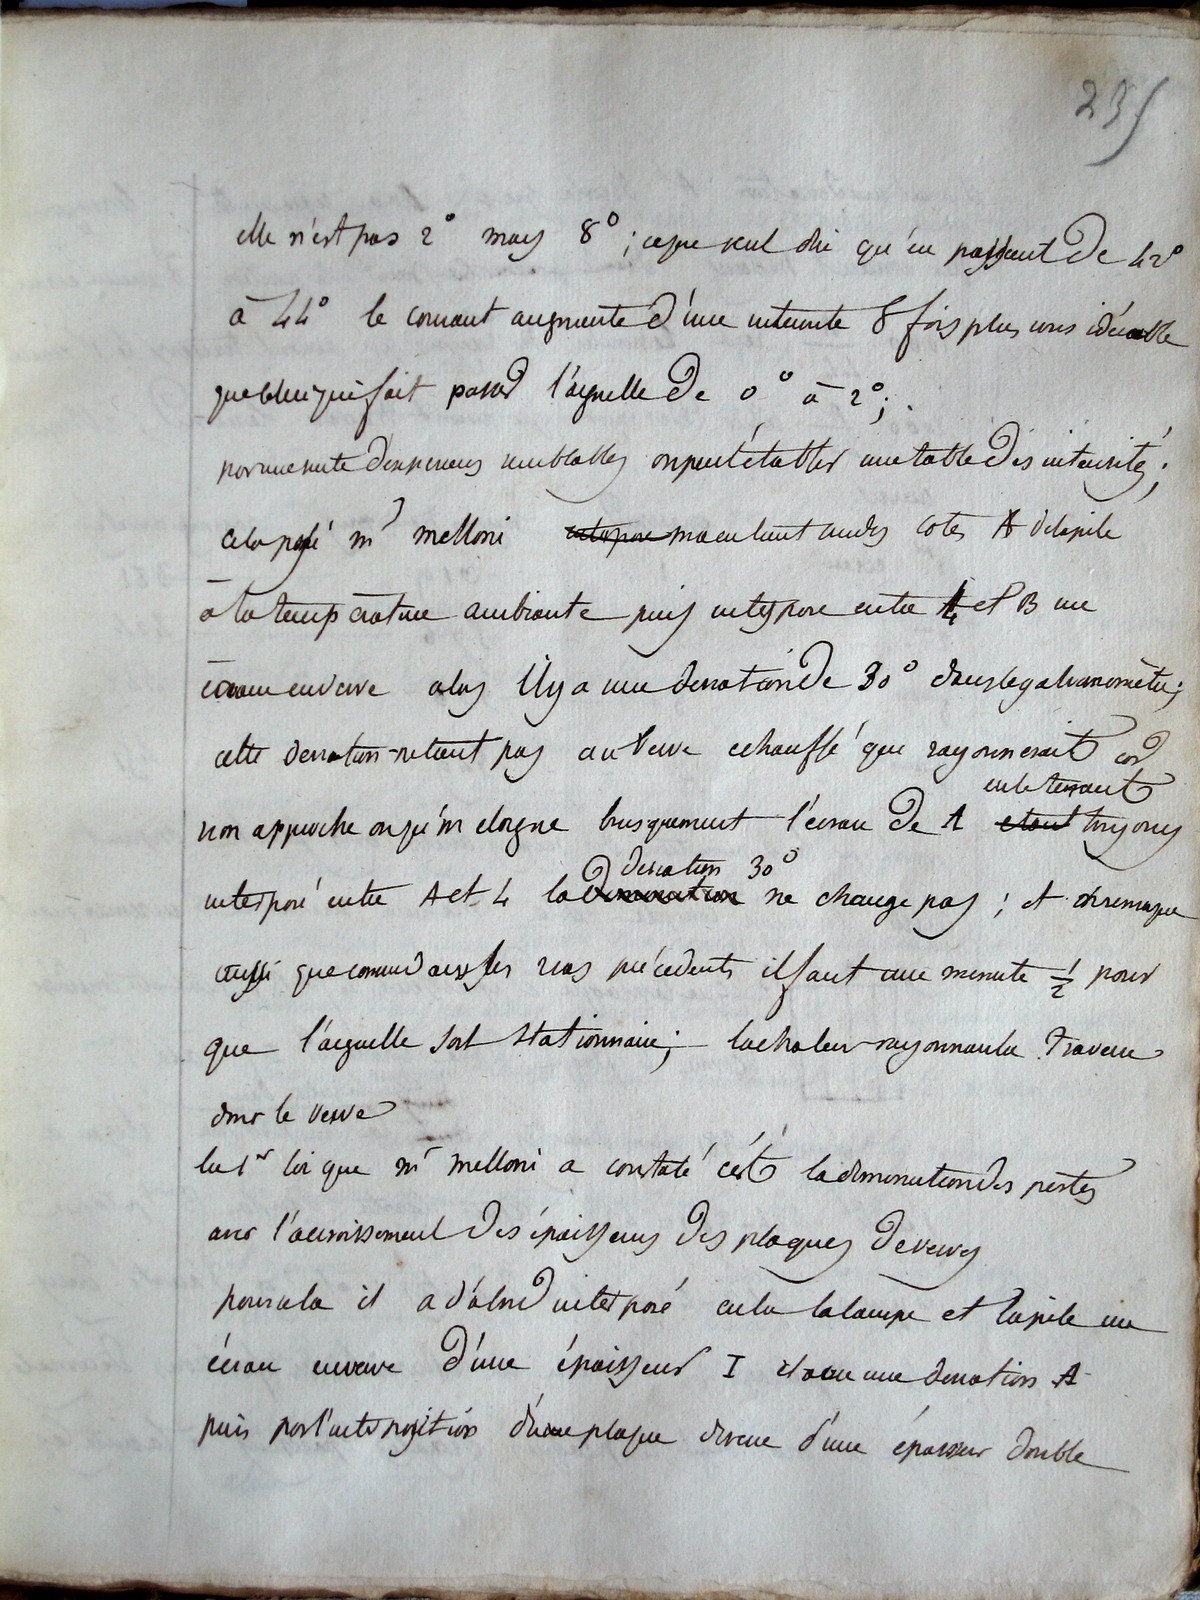 235
elle n'est pas 2° mais 8°; ce qui veut dire qu'en passant de 42°
à 44° le courant augmente d'une intensité 8 fois plus considérable
que celui qui fait passer l'aiguille de 0° à 2°;
par une suite d'expériences semblables on peut établir une table des intensités;
cela posé mr melloni cela posé maintient un des cotés A de la pile
à la température ambiante puis interpose entre A et B un
écran en verre alors il y a une déviation de 30° dans le galvanomètre;
cette déviation netient pas au verre echauffé que rayonnerait car
en le tenant
non approche ou qu'on eloigne brusquement l'écran de A étant toujours
deviation 30°
interposé entre A et 4 la diminution ne change pas; et on remarque
aussi que comme dans les cas précédents il faut une minute 1/2 pour
que l'aiguille soit stationnaire; la chaleur rayonnante traverse
donc le verre
la 1r loi que mr melloni a constaté c'est la diminution des pertes
avec l'accroissement des épaisseurs des plaques de verres
pour cela il a d'abord interposé entre la lampe et la pile un
écran en verre d'une épaisseur I et a eu une deviation A
puis par l'interposition d'une plaque de verre d'une épaisseur double